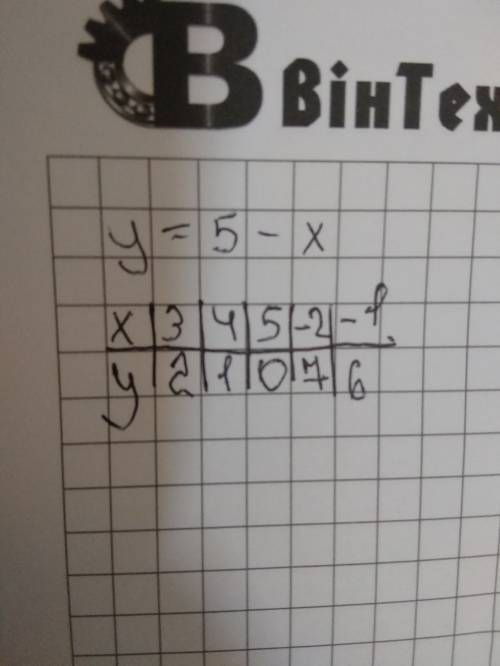 ВінТех
y = 5 - x
x 3 4 5 -2 -1
y 2 1 0 7 6